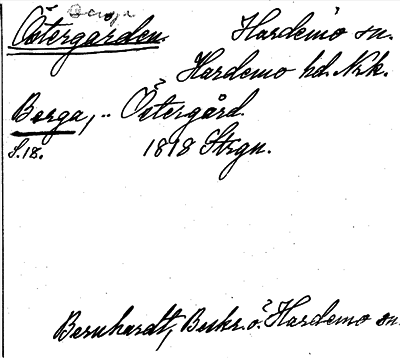 Berga
Östergården Hardemo sn.
Hardemo hd. Nrk.
Berga, .. Östergård
S.18. 1818 Strgn.
Bernhardt, Beskr. ö. Hardemo sn.